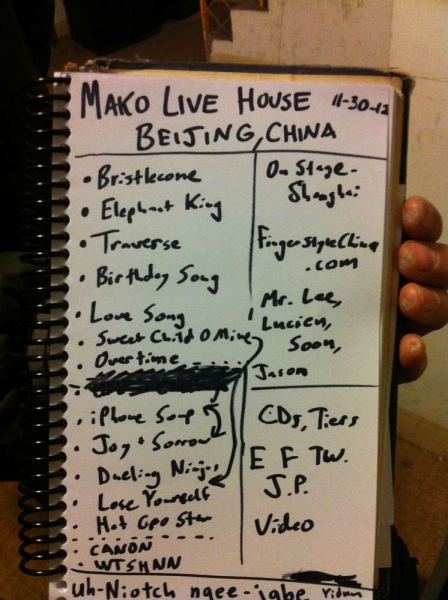 MAKO LIVE HOUSE 11-30-12
BEIJING, CHINA
• Bristlecone
• Elephant King
• Traverse
• Birthday Song
• Love Song
• Sweet Child O Mine
• Overtime
• iPhone Soup
• Joy + Sorrow
• Dueling Ninjas
• Lose Yourself
• Hot Cpo Star
• CANON
• WTSHNN
On Stage-
Shanghai
FingerstyleChina
.com
Mr. Lee,
Lucien,
Soon,
Jason
CDs, Tiers
E F TW.
J.P.
Video
Uh-Niotch ngee-jgbe